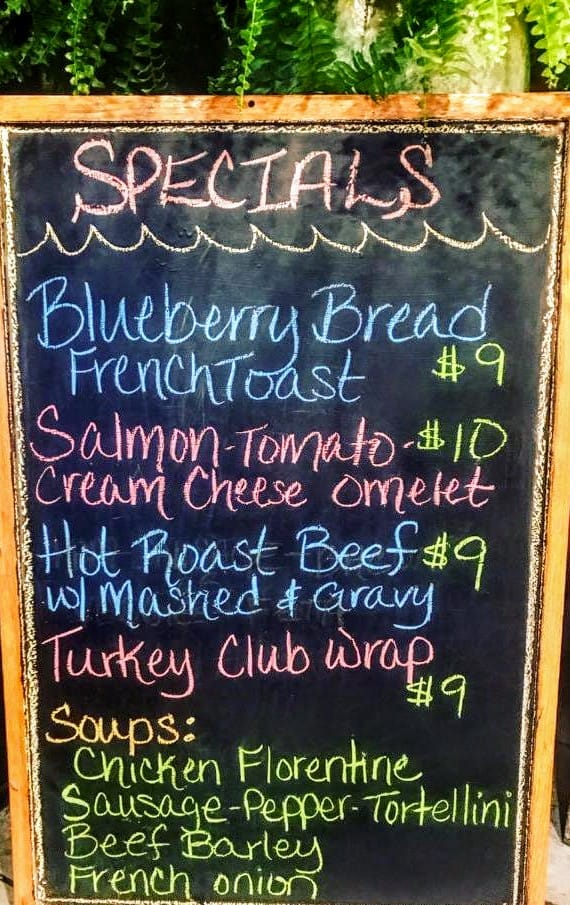 SPECIALS
Blueberry Bread
French Toast $9
Salmon-Tomato- $10
Cream Cheese omelet
Hot Roast Beef $9
w/ Mashed & Gravy
Turkey Club Wrap
$9
Soups:
Chicken Florentine
Sausage-Pepper-Tortellini
Beef Barley
French onion